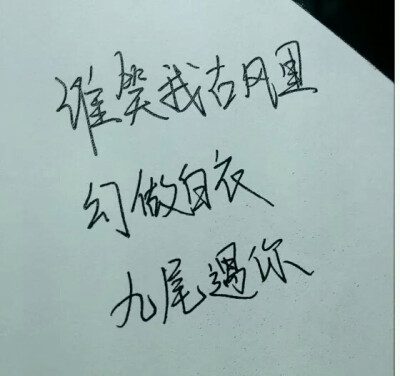 谁笑我古风里
幻做白衣
九尾遇你